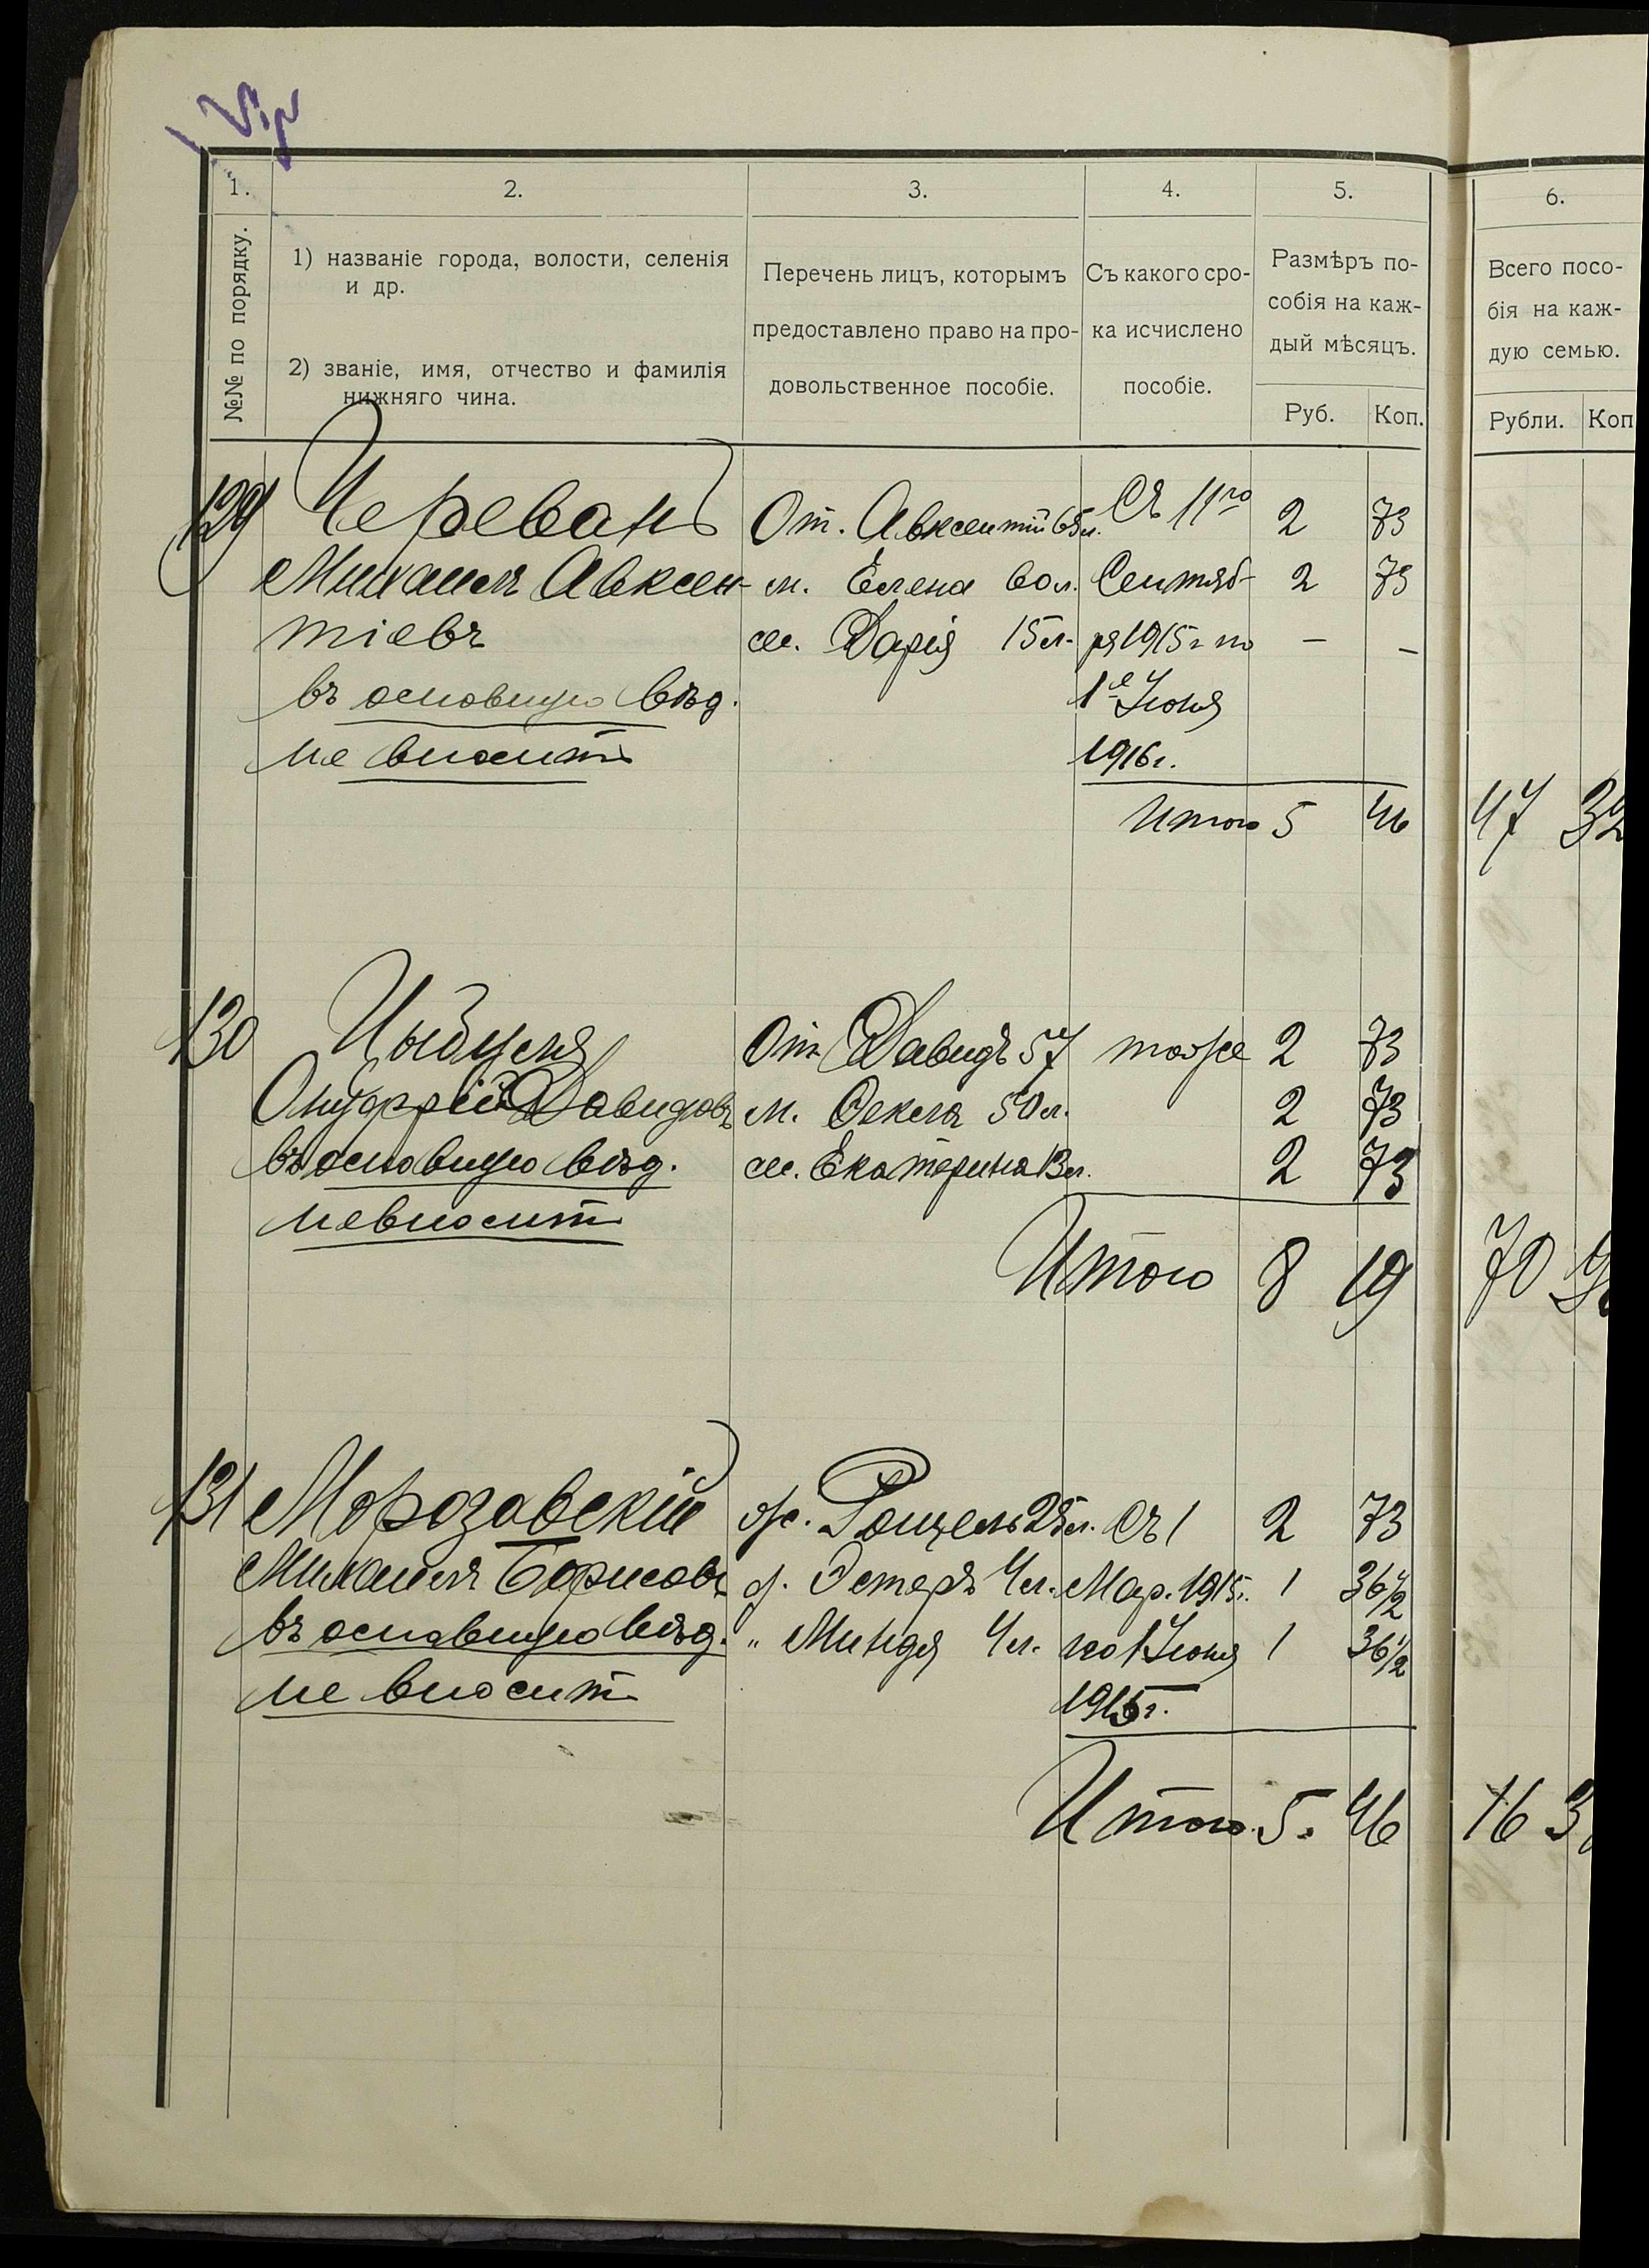 1. 2. 3. 4. 5. 6.
№№ по порядку.
1) названіе города, волости, селенія
и др.
2) званіе, имя, отчество и фамилія
нижняго чина.
Перечень лицъ, которымъ
предоставлено право на про-
довольственное пособіе.
Съ какого сро-
ка исчислено
пособіе.
Размѣръ по-
собія на каж-
дый мѣсяцъ.
Руб. Коп.
Всего посо-
бія на каж-
дую семью.
Рубли. Коп
129 Череванъ От. Авксентій 65 л. Съ 11го 2 73
Михаилъ Авксен- м. Елена 60 л. Сентяб- 2 73
тіевъ се. Дарія 15 л. ря 1915 г по — —
въ основную вѣд. 1е Іюня
не вносить 1916 г.
Итого 5 46 47 32
130 Цыбуля От Давидъ 57 тоже 2 73
Онуфрій Давидовъ м. Фекла 50 л. 2 73
въ основную вѣд. се. Екатерина 13 л. 2 73
не вносить
Итого 8 19 70
131 Морозовскій ж. 25 л. Съ 1 2 73
Михаилъ Борисовъ д. Эстеръ 4 л. Мар. 1915 г. 1 36 1/2
въ основную вѣд. " Миндя 4 л. по 1 Іюня 1 36 1/2
не вносить 1915 г.
Итого 5. 46 16 3